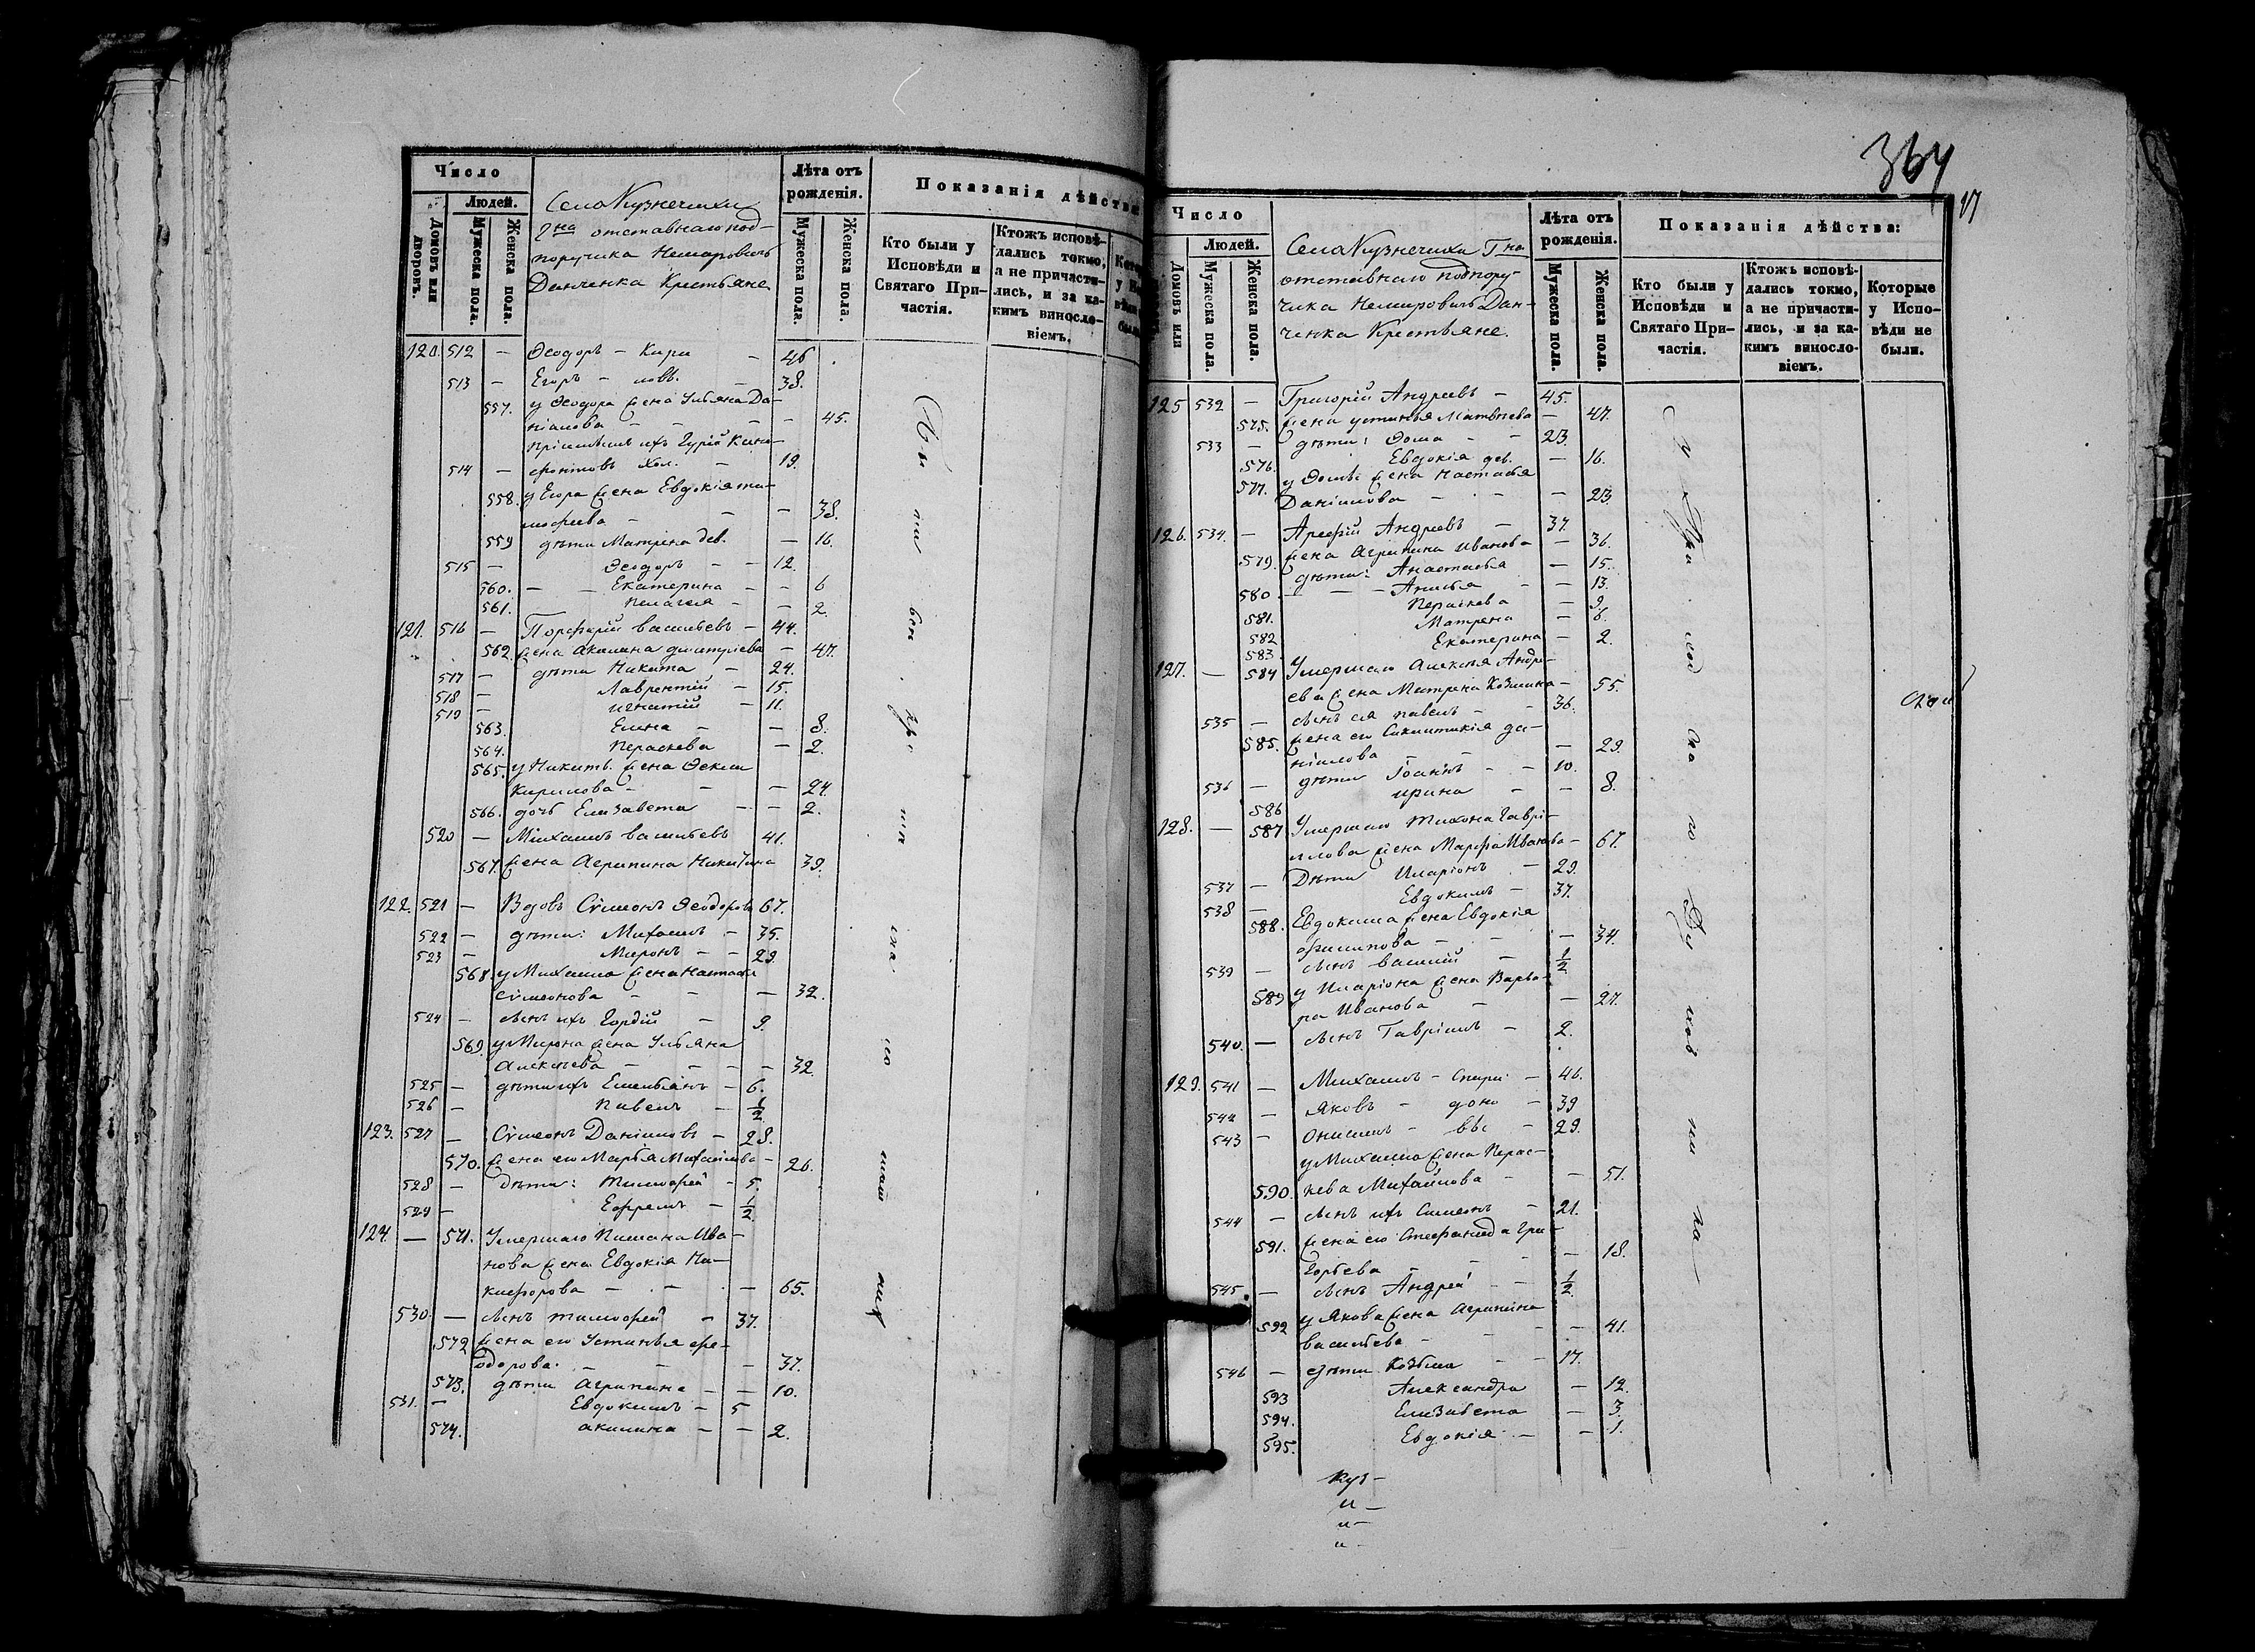 Число
Людей.
Домовъ или дворовъ.
Мужеска пола.
Женска пола.
Села Кузнечихи
Гна отставнаго под-
поручика Немировичь
Данченка Крестьяне
Лѣта отъ рожденія.
Мужеска пола.
Женска пола.
Показанія дѣйства
Кто были у Исповѣди и Святаго При-частія.
Ктожъ исповѣ-дались токмо, а не причасти-лись, и за ка-кимъ винословіемъ.
120. 512 — Ѳеодоръ — Кири — 46
513 — Егоръ — ловы. — 38.
557. у Ѳеодора жена Ульяна Да-
ніилова — — — 45.
514 — 19.
558. у Егора жена Евдокія Ти-
мофеева — — — 38.
559 дѣти Матрена дев. — 16.
515 — Ѳеодоръ — — 12.
560. — — Екатерина — — 6
561. Пелагея — — 2.
121. 516 — Порфирій Васильевъ — 44.
562. жена Акилина Димитріева — 47.
517 — дѣти Никита — 24.
518 — Лаврентій — 15.
519 — Игнатій — 11.
563. Елена — — 8.
564. Параскева — 2.
565. у Никиты жена Ѳекла
Кирилова — — — 24.
566. дочь Елизавета — — 2.
520 — Михаилъ Васильевъ 41.
567. жена Агрипина Никитина 39.
122. 521 — Вдовъ Сѵмеонъ Ѳеодоровъ 67.
522 — дѣти: Михаилъ — 35.
523 — Миронъ — — 29.
568. у Михаила жена Настасья
Сѵмеонова — — — 32.
524 — сынъ ихъ Гордій — 9.
569. у Мирона жена Ульяна
Алексѣева — — — 32.
525 — дѣти ихъ Емельянъ — 6.
526 — Павелъ — 1/2
123. 527 — Сѵмеонъ Даніиловъ — 28.
570. жена его Марья Михайлова — 26.
528 — дѣти: Тимофей — 5.
529 — Ефремъ — 1/2
124. — 571. Умершаго Пимана Ива-
нова жена Евдокія Ни-
кифорова — — — 65.
530 — сынъ Тимофей — 37.
572 жена его Устинья Фе-
одорова — — — 37.
573. дѣти Агрипина — — 10.
531. — Евдокимъ — 5
574. Акилина — — 2.
364
17
Число
Людей.
Домовъ или
Мужеска пола.
Женска пола.
Села Кузнечихи Гна
отставнаго подпору-
чика Немировичь Дан-
ченка Крестьяне.
Лѣта отъ рожденія.
Мужеска пола.
Женска пола.
Показанія дѣйства:
Кто были у Исповѣди и Святаго При-частія.
Ктожъ исповѣ-дались токмо, а не причасти-лись, и за ка-кимъ винословіемъ.
Которые у Испо-вѣди не были.
125 532 — Григорій Андреевъ — 45.
575. жена Устинья Матвѣева — 47.
533 — дѣти: Ѳома — — 23.
576. Евдокія дев. — 16.
577. у Ѳомы жена Настасья
Даніилова — — — 23
126. 534. — Арефій Андреевъ — 37.
579. жена Агрипина Иванова — 36.
дѣти: Анастасья — 15.
580 — — — Анисья — — 13.
581. Параскева — 9.
582 Матрена — 6.
583. Екатерина — 2.
127. — 584 Умершаго Алексѣя Андре-
ева жена Матрена Козмина — 55.
535 — сынъ ея Павелъ — — 36.
585. жена его Сиклитикія Да-
ніилова — — — 29.
536 — дѣти Іоаннъ — — 10.
586 Ирина — — 8.
128. — 587 Умершаго Тихона Гаврі-
илова жена Марфа Иванова — 67.
537 — Дѣти Иларіонъ — 29.
538 — Евдокимъ — 37.
588. Евдокима жена Евдокія
Филипова — — — 34.
539 — сынъ Василій — 1/2
589 у Иларіона жена Варва-
ра Иванова — — 27.
540. — сынъ Гавріилъ — 2.
129. 541 — Михаилъ — Спири — 46.
542 — Яковъ — доно — 39
543 — Онисимъ — вы — 29.
у Михаила жена Парас-
590. кева Михайлова — — 51.
544 — сынъ ихъ Симеонъ — 21.
591. жена его Стефанида Гри-
горьева — — — 18.
545. — сынъ Андрей — — 1/2
592 у Якова жена Агрипина
Васильева — — — 41.
546 — дѣти Козьма — — 17.
593 Александра — 12.
594. Елизавета — 3.
595. Евдокія — — 1.